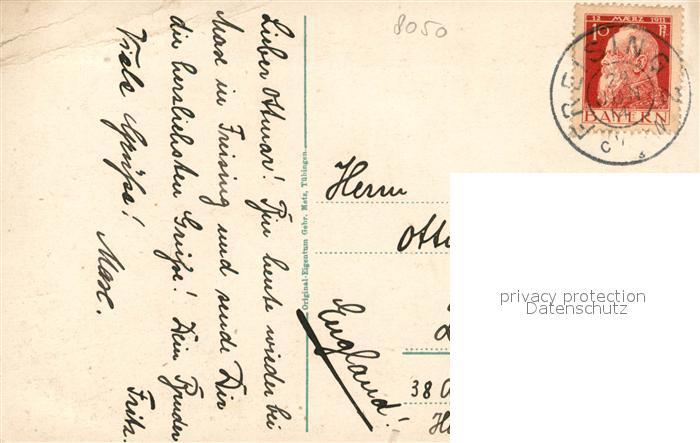 8050
12. MÆRZ 1911
10 Pf
BAYERN
FREISING
Lieber Ottmar! Bin heute wieder bei
Max in Freising und sende Dir
die herzlichsten Grüße! Dein Bruder
Fritz.
Viele Grüße! Max.
Original-Eigentum Gebr. Metz, Tübingen.
Herrn
England!
38
privacy protection
Datenschutz